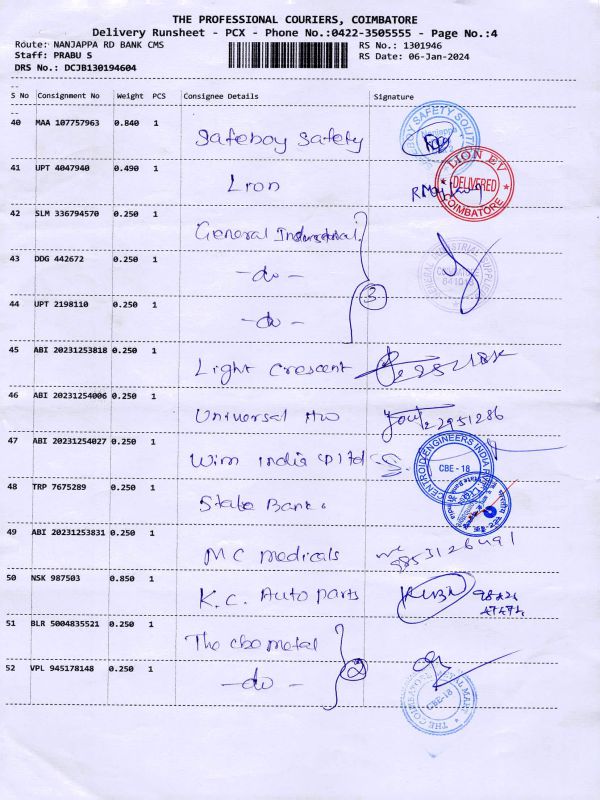 THE PROFESSIONAL COURIERS, COIMBATORE
Delivery Runsheet - PCX - Phone No.:0422-3505555 - Page No.:4
Route: NANJAPPA RD BANK CMS RS No.: 1301946
Staff: PRABU S RS Date: 06-Jan-2024
DRS No.: DCJB130194604
S No Consignment No Weight PCS Consignee Details Signature
40 MAA 107757963 0.840 1 Safeboy Safety
41 UPT 4047940 0.490 1 Lion
LION EV
DELIVERED
COIMBATORE
42 SLM 336794570 0.250 1 General Industrial
43 DDG 442672 0.250 1 - do -
44 UPT 2198110 0.250 1 - do -
3
45 ABI 20231253818 0.250 1 Light Crescent
46 ABI 20231254006 0.250 1 Universal Hw
47 ABI 20231254027 0.250 1 Wim India (P) ltd
CENTROID ENGINEERS INDIA
CBE - 18
48 TRP 7675289 0.250 1 State Bank
49 ABI 20231253831 0.250 1 MC Medicals
50 NSK 987503 0.850 1 K.C. Auto parts
51 BLR 5004835521 0.250 1 The cbe metal
52 VPL 945178148 0.250 1 - do -
2
THE COIMBATORE METAL MART
CBE-18